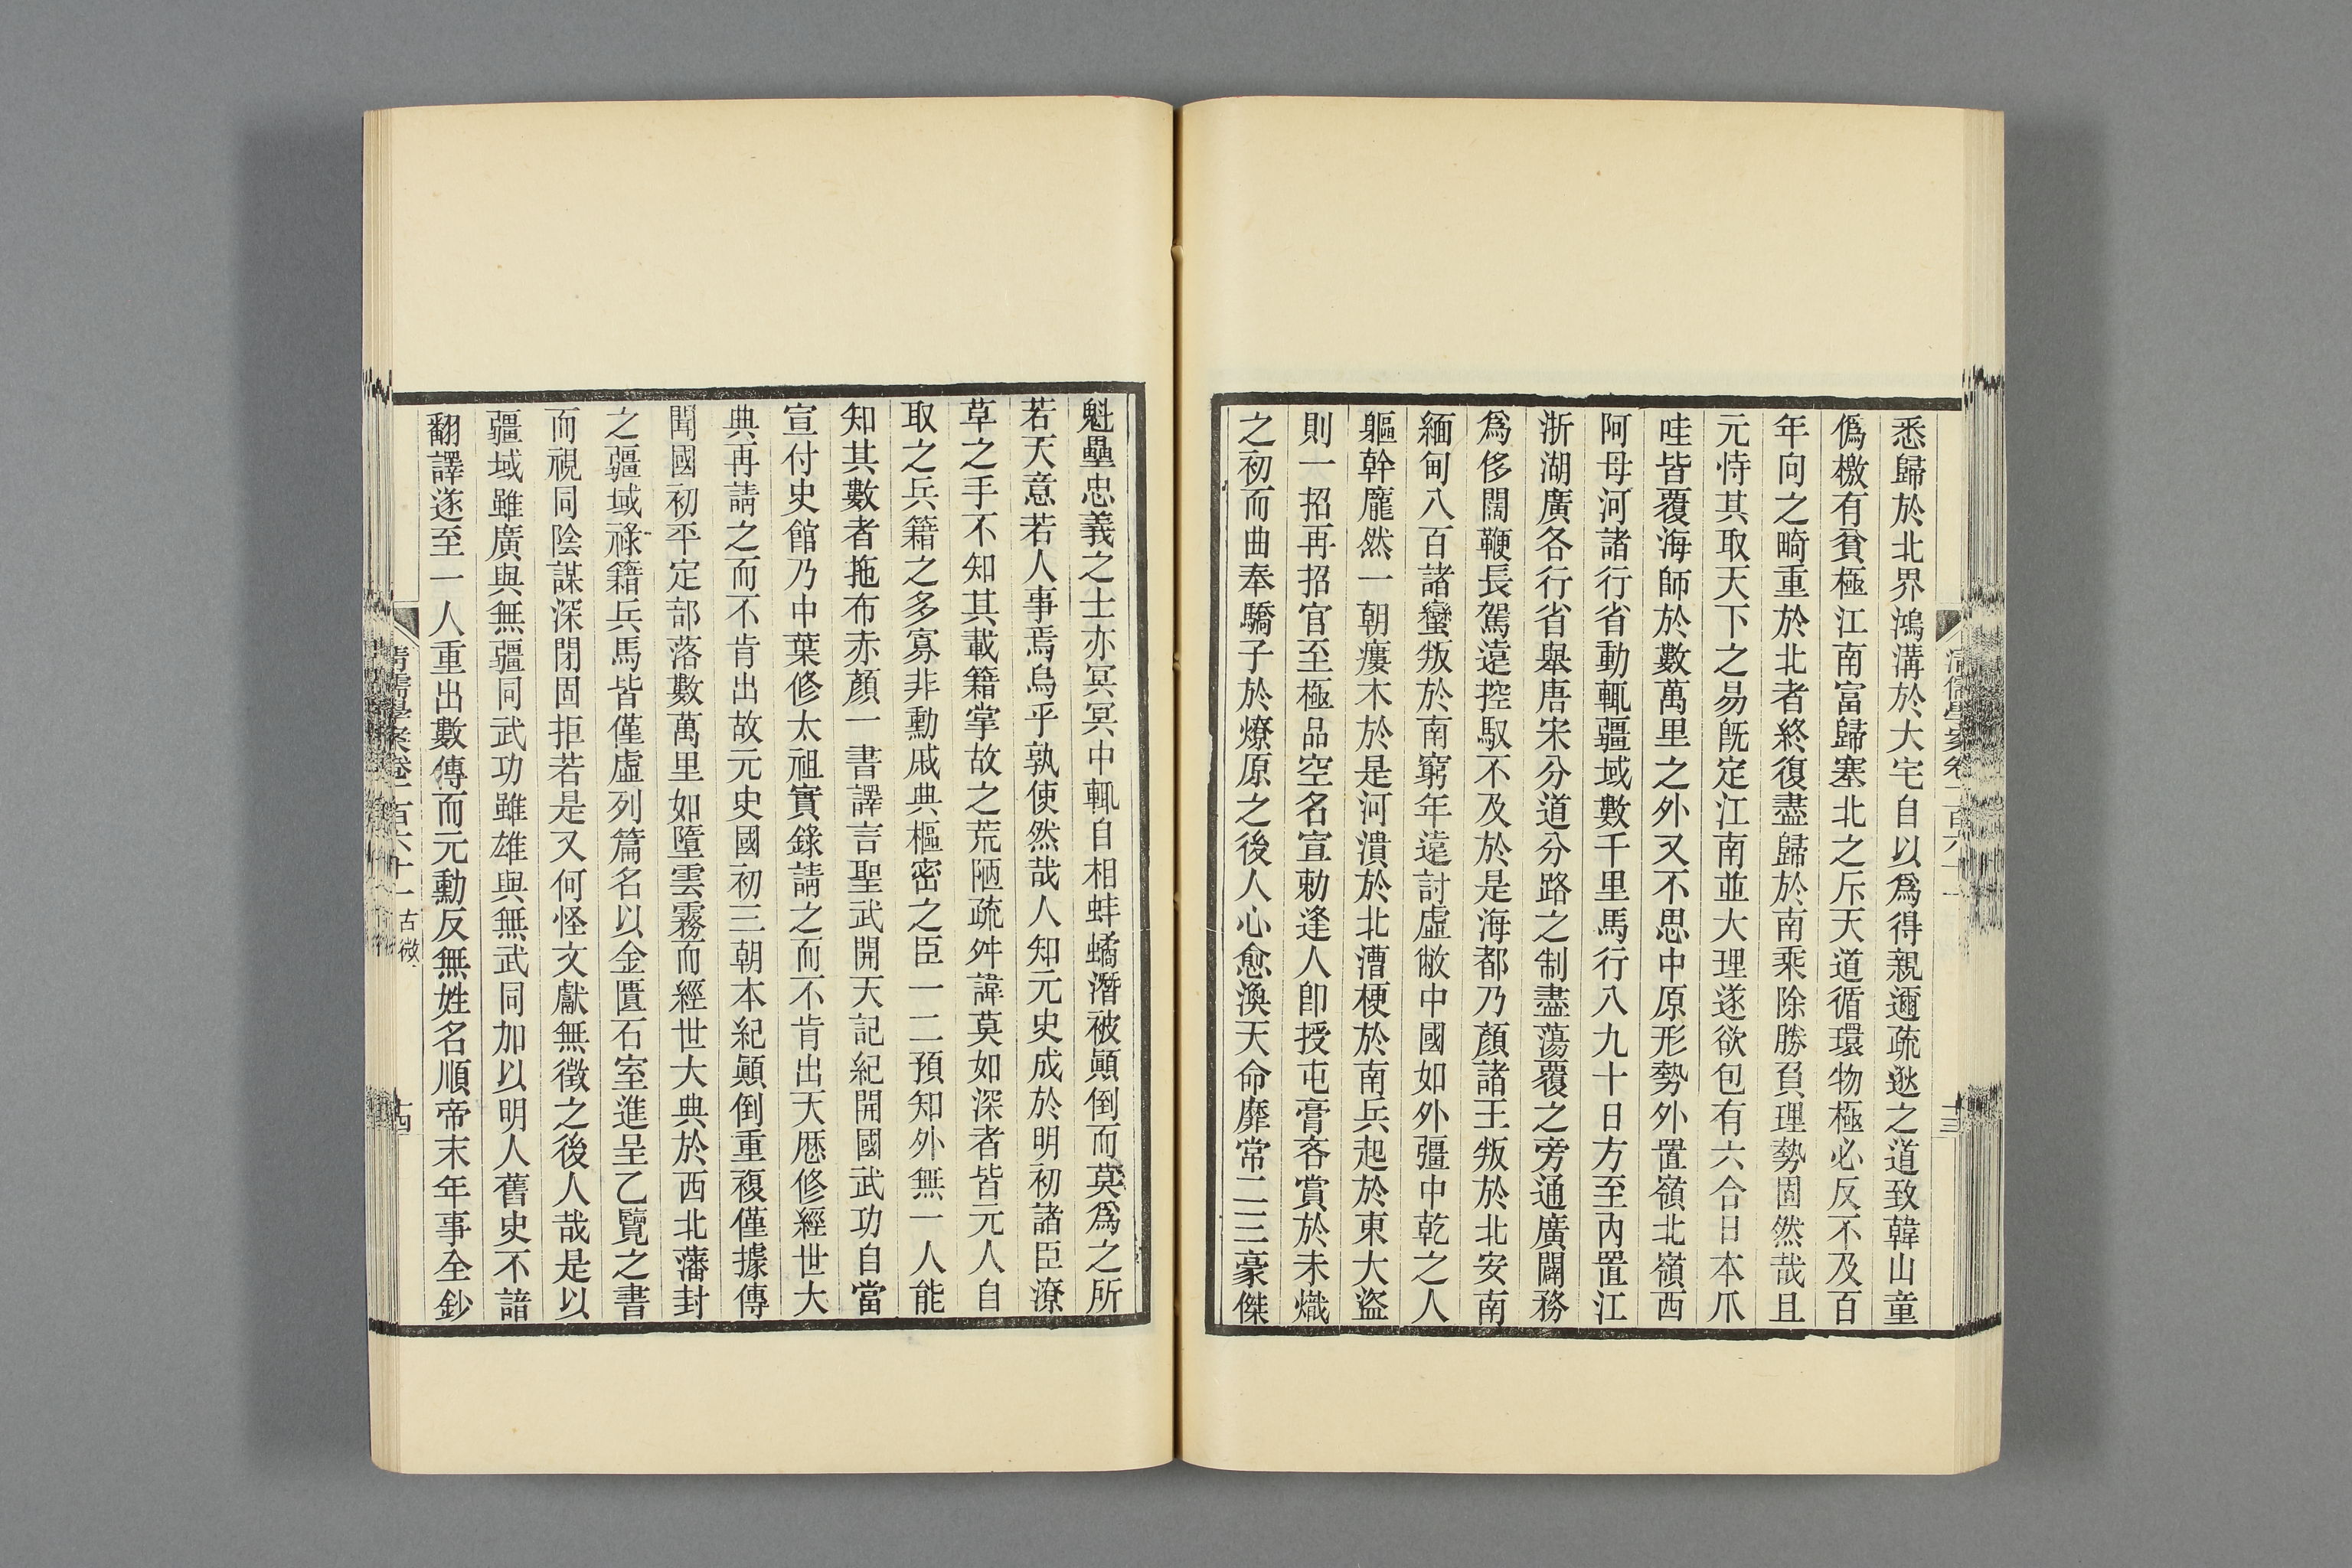 悉歸於北界鴻溝於大宅自以爲得親邇疏逖之道致韓山童
僞檄有貧極江南富歸塞北之斥天道循環物極必反不及百
年向之畸重於北者終復盡歸於南乘除勝負理勢固然哉且
元恃其取天下之易旣定江南並大理遂欲包有六合日本爪
哇皆覆海師於數萬里之外又不思中原形勢外置嶺北嶺西
阿母河諸行省動輒疆域數千里馬行八九十日方至內置江
浙湖廣各行省舉唐宋分道分路之制盡蕩覆之旁通廣闢務
爲侈闊鞭長駕遠控馭不及於是海都乃顏諸王叛於北安南
緬甸八百諸蠻叛於南窮年遠討虛敝中國如外疆中乾之人
軀幹龐然一朝癭木於是河潰於北漕梗於南兵起於東大盜
則一招再招官至極品空名宣勅逢人卽授屯膏吝賞於未熾
之初而曲奉驕子於燎原之後人心愈渙天命靡常二三豪傑
魁壘忠義之士亦冥冥中輒自相蚌蟜潛被顚倒而莫爲之所
若天意若人事焉烏乎孰使然哉人知元史成於明初諸臣潦
草之手不知其載籍掌故之荒陋疏舛諱莫如深者皆元人自
取之兵籍之多寡非勳戚典樞密之臣一二預知外無一人能
知其數者拖布赤顏一書譯言聖武開天記紀開國武功自當
宣付史館乃中葉修太祖實錄請之而不肯出天厯修經世大
典再請之而不肯出故元史國初三朝本紀顚倒重複僅據傳
聞國初平定部落數萬里如墮雲霧而經世大典於西北藩封
之疆域祿籍兵馬皆僅虛列篇名以金匱石室進呈乙覽之書
而視同陰謀深閉固拒若是又何怪文獻無徵之後人哉是以
疆域雖廣與無疆同武功雖雄與無武同加以明人舊史不諳
翻譯遂至一人重出數傳而元勳反無姓名順帝末年事全鈔
清儒學案卷一百六十一 古微
十四